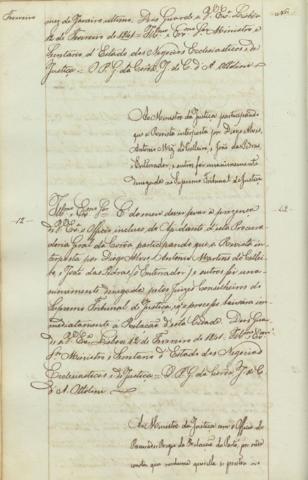 Fevereiro
mez de Janeiro ultimo. Deus Guarde a V. Exª. Lisboa
12 de Fevereiro de 1861 = Illmo. e Exmo. Snr. Ministro e
Secretario d'Estado dos Negocios Ecclesiasticos e de
Justiça = O P. G. da Corôa J. de C. d'A. Ottolini
Ao Ministro da Justiça participando
que a Revista interposta por Diogo Alves,
Antonio Martins, e João das Pedras,
Enterrador, e outros foi unanimemente
denegada no Supremo Tribunal de Justiça
12
Illmo. e Exmo. Snr. = É do meu dever levar á presença
de V. Exª. o Officio incluso do Ajudante desta Procura
doria Geral da Corôa participando que a Revista in
terposta por Diogo Alves, Antonio Martins
e João das Pedras, o Enterrador, e outros foi una
nimemente denegada pelos Juizes Conselheiros do
Supremo Tribunal de Justiça, e o processo baixou im
mediatamente á Relação desta Cidade. Deus Guar
de a V. Exª. Lisboa 12 de Fevereiro de 1861. Illmo. e Exmo.
Snr. Ministro e Secretario d'Estado dos Negocios
Ecclesiasticos e de Justiça = O P. G. da Corôa J. de C.
d'A. Ottolini
Ao Ministro da Justiça com o Officio do
da Relação do Porto,